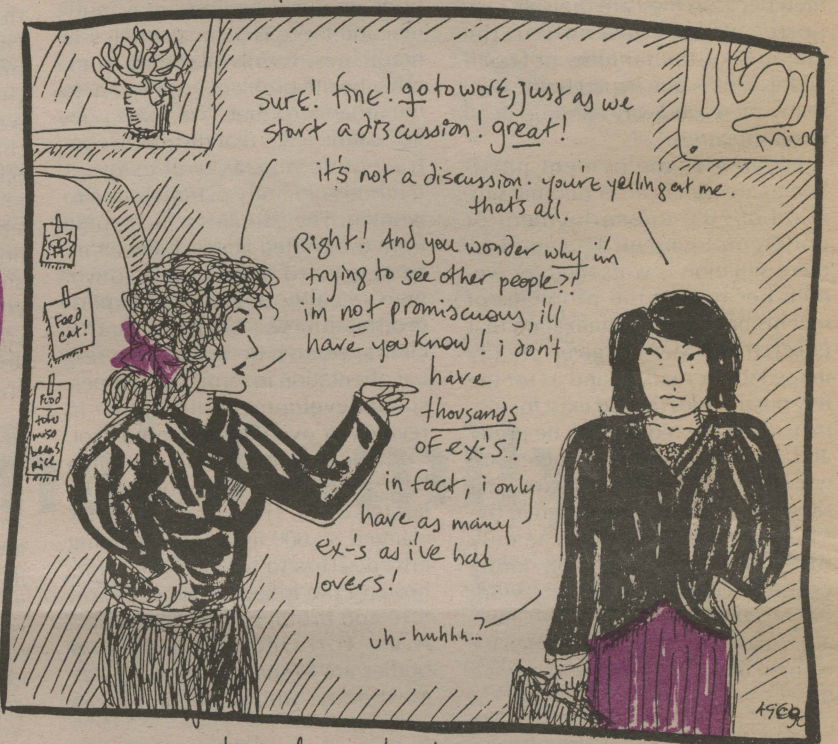 Sure! fine! go to work, just as we
start a discussion! great!
it's not a discussion. you're yelling at me.
that's all.
Right! And you wonder why i'm
trying to see other people?!
i'm not promiscuous, i'll
have you know! i don't
have
thousands
of ex-'s!
in fact, i only
have as many
ex-'s as i've had
lovers!
uh-huhhh...?
Feed
cat!
Food
tofu
miso
beans
Rice